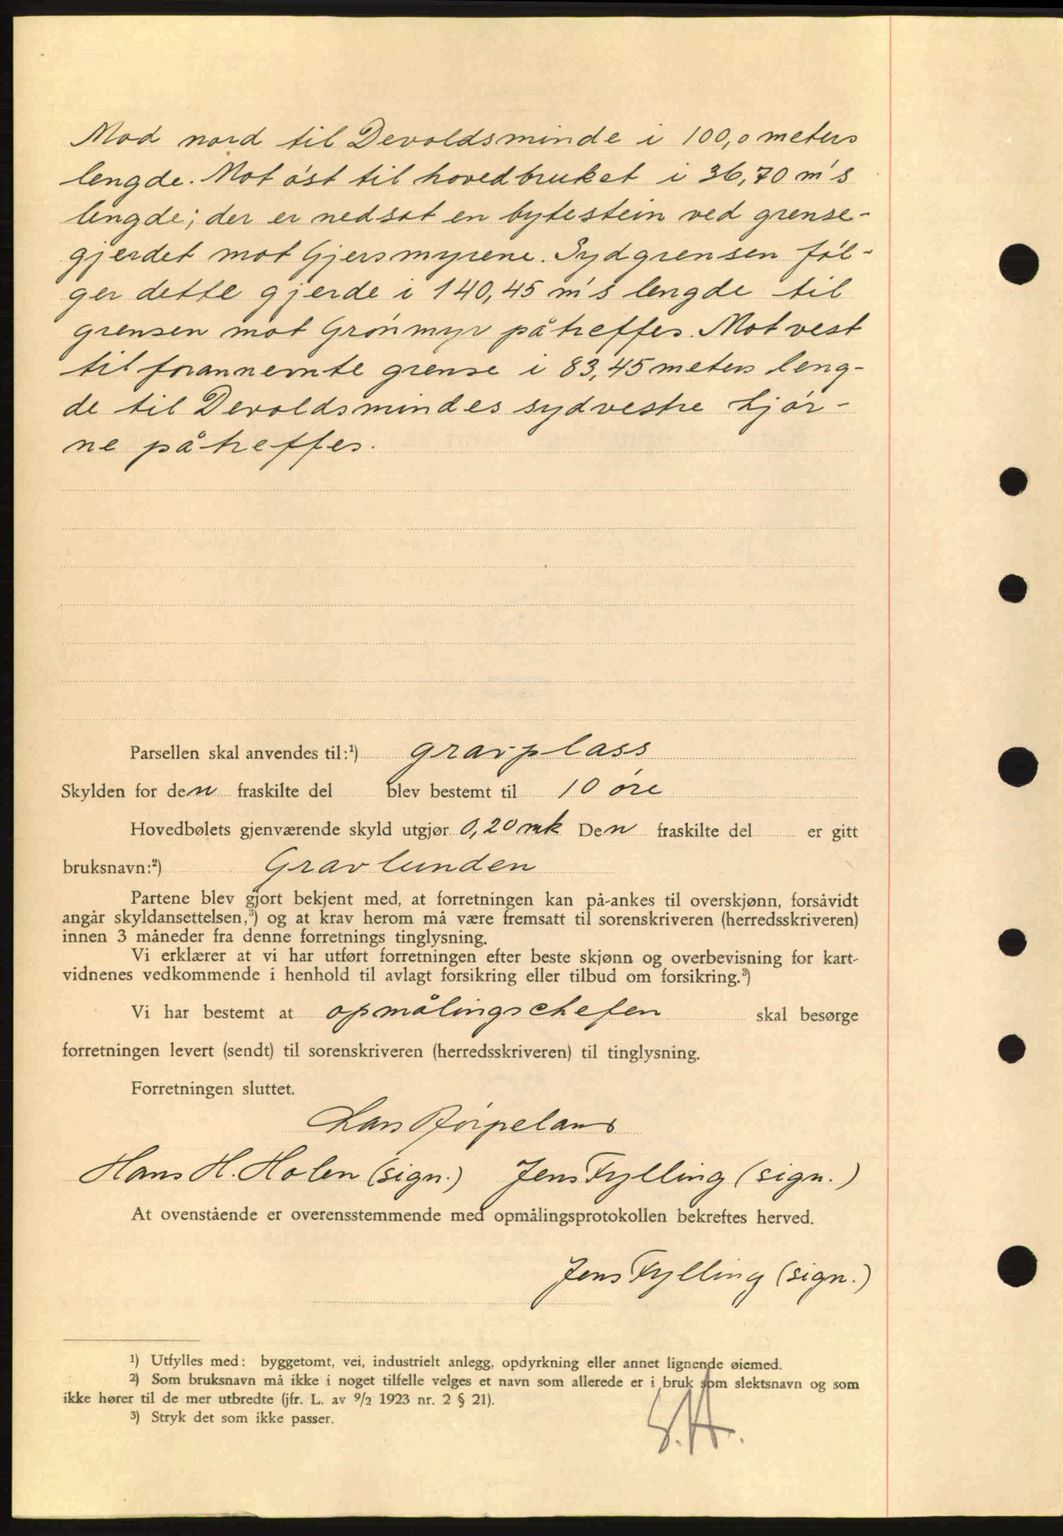 Mod nord til Devoldsminde i 100,0 meters
lengde. Mot øst til hovedbruket i 36,70 m's
lengde; der er nedsat en bytestein ved grense-
gjerdet mot Gjersmyrene. Sydgrensen føl-
ger dette gjerde i 140,45 m's lengde til
grensen mot Grønmyr påtreffes. Mot vest
til forannemte grense i 83,45 meters leng-
de til Devoldsmindes sydvestre hjør-
ne påtreffes.
Parsellen skal anvendes til:¹) gravplass
Skylden for den fraskilte del blev bestemt til 10 øre
Hovedbølets gjenværende skyld utgjør 0,20 mk Den fraskilte del er gitt
bruksnavn:²) Gravlunden
Partene blev gjort bekjent med, at forretningen kan på-ankes til overskjønn, forsåvidt
angår skyldansettelsen,³) og at krav herom må være fremsatt til sorenskriveren (herredsskriveren)
innen 3 måneder fra denne forretnings tinglysning.
Vi erklærer at vi har utført forretningen efter beste skjønn og overbevisning for kart-
vidnenes vedkommende i henhold til avlagt forsikring eller tilbud om forsikring.³)
Vi har bestemt at opmålingschefen skal besørge
forretningen levert (sendt) til sorenskriveren (herredsskriveren) til tinglysning.
Forretningen sluttet.
Lars Rørpeland
Hans H. Holen (sign.) Jens Fylling (sign.)
At ovenstående er overensstemmende med opmålingsprotokollen bekreftes herved.
Jens Fylling (sign.)
¹) Utfylles med: byggetomt, vei, industrielt anlegg, opdyrkning eller annet lignende øiemed.
²) Som bruksnavn må ikke i noget tilfelle velges et navn som allerede er i bruk som slektsnavn og som
ikke hører til de mer utbredte (jfr. L. av 9/2 1923 nr. 2 § 21).
³) Stryk det som ikke passer.
S.H.